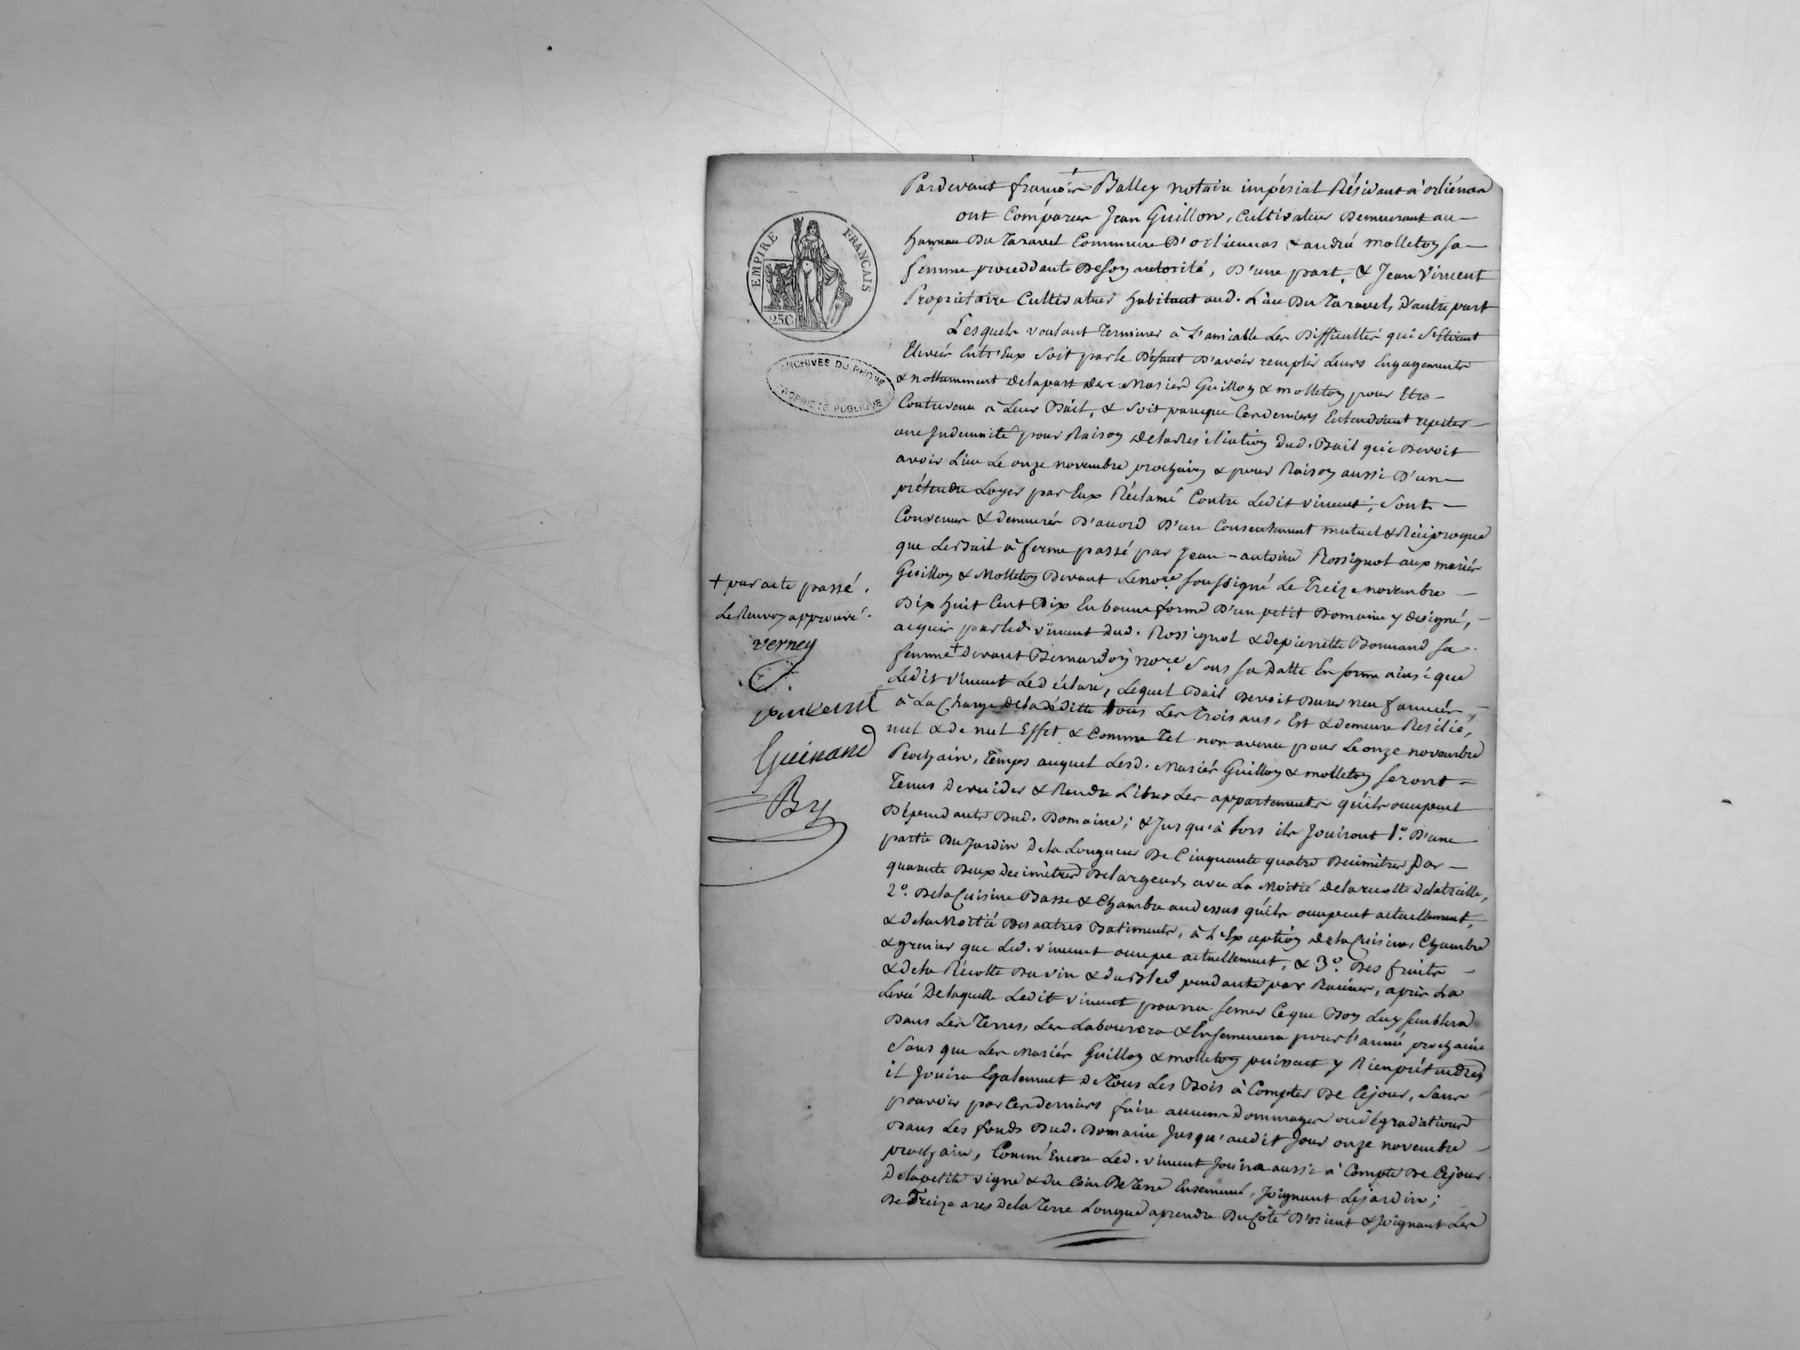 Pardevant françois Balley notaire impérial Résidant à orliénas
ont Comparus Jean Guillon, Cultivateur Demeurant au
hameau Du Taravel Commune D'orliennas & andré molleton sa
femme proceddante De son autorité, D'une part, & Jean Vincent
Proprietaire Cultivateur habitant aud. Lieu Du Taravel, D'autre part
Lesquels voulant Terminer à L'amiable Les Difficultés qui S'Etoient
Elevées Entr'Eux Soit par le Défaut D'avoir remplir Leurs Engagements
& nottamment de la part des Mariés Guillon & molleton pour Etre
Contrevenu à Leur Bail, & Soit parceque Ces derniers Entendoient repeter
une Indemnité pour Raison de la Resiliation Dud. Bail qui Devoit
avoir Lieu Le onze novembre prochain & pour Raison aussi D'un
prétendu Loyer par Eux Réclamé Contre Ledit vincent; Sont
Convenus & demeurés D'accord D'un Consentement mutuel & Réciproque
que Le Bail à ferme passé par Jean-antoine Rossignol aux mariés
Guillon & Molleton Devant Le no.re soussigné Le Treize novembre
Dix huit Cent Dix En bonne forme D'un petit Domaine y désigné,
acquis par led. vincent dud. Rossignol & de pierrette Bonnand sa
femme + Devant Bernardon no.re Sous sa Datte En forme ainsi que
Ledit vincent Le Déclare, Lequel Bail Devoit Durer neuf années
à La Charge de la déditte tous Les Trois ans, Est & demeure Resilié,
nul & de nul Effet & Comme Tel non avenu pour Le onze novembre
Prochain, Temps auquel Lesd. Mariés Guillon & molleton seront
Tenus De vuider & Rendre Libres Les appartements qu'ils occupent
Dépendants Dud. Domaine; & Jusqu'à lors ils Jouiront 1.° D'une
partie Du Jardin De la Longueur De Cinquante quatre Decimètres par
quarante Deux decimètres De largeur, avec La Moitié de la recolte de la treille,
2.° De la Cuisine Basse & Chambre au dessus qu'ils occupent actuellement,
& de la Moitié Des autres Batiments, à L'Exception de la Cuisine, Chambre
& grenier que Led. vincent occupe actuellement, & 3.° Des fruits
& de la Récolte Du vin & du Bled pendante par Racines, après La
Levée De laquelle Ledit vincent pourra semer Ce que Bon Luy semblera
Dans Les Terres, Les Labourera & Ensemencera pour l'année prochaine
Sans que Les Mariés Guillon & molleton puissent y Rien prétendre,
il Jouira Egalement De Tous Les Bois à Compter De Ce jour, Sans
pouvoir par Ces derniers faire aucuns Dommages ou dégradations
Dans Les fonds Dud. Domaine Jusqu'audit Jour onze novembre
prochain, Comm'Encore Led. vincent Jouira aussi à Compter De Ce jour
De la petite vigne & du Coin De Terre Ensemencé, Joignant Le jardin;
De Treize ares De la Terre Longue a prendre Du Côté D'orient & Joignant Les
+ par acte passé.
Le Renvoy approuvé.
verney
vinkent
Guénard
By
EMPIRE FRANÇAIS
25C
ARCHIVES DU RHÔNE
PROPRIÉTÉ PUBLIQUE